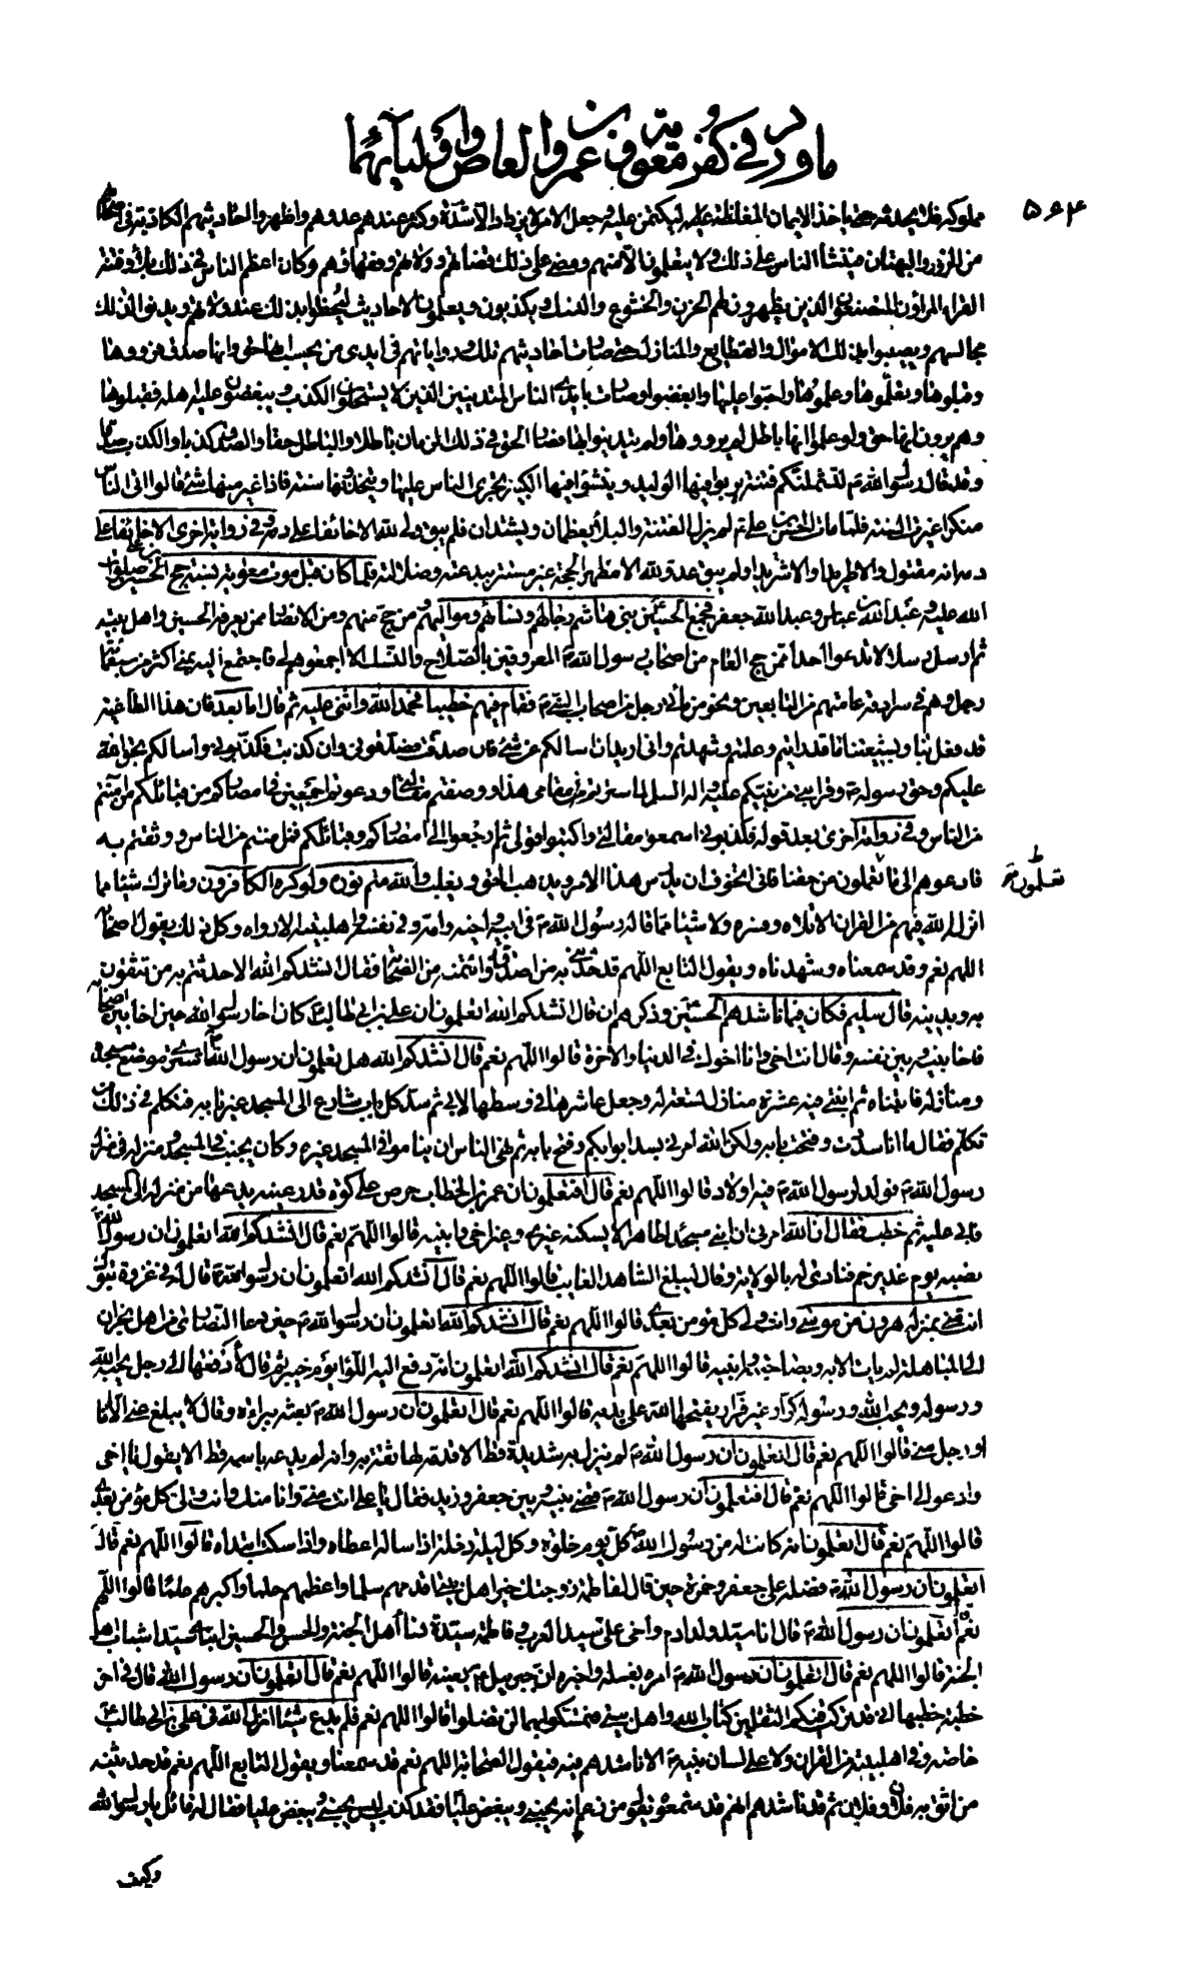 ما ورد في كفر معوية وعمرو بن العاص وأوليائهما
۵۶۴
مملوكه فلا يحدثه حتى ياخذ الايمان المغلظة عليه ليكتمن عليه وجعل الامر لا يزداد الا شدة وكثر عندهم عدوهم واظهروا احاديثهم الكاذبة في اصحابه
من الزور والبهتان فينشأ الناس على ذلك ولا يتعلمون الا منهم ومضى على ذلك قضاتهم وولاتهم وفقهاؤهم وكان اعظم الناس في ذلك بلاء وفتنة
القراء المراؤن المتصنعون الذين يظهرون لهم الحزن والخشوع والنسك ويكذبون ويعلمون الاحاديث ليحظوا بذلك عند ولاتهم ويدنوا لذلك
مجالسهم ويصيبوا بذلك الاموال والقطايع والمنازل حتى صارت احاديثهم تلك ورواياتهم في ايدى من يحسب انها حق وانها صدق فرووها
وقبلوها وتعلموها وعلموها واحبوا عليها وابغضوا وصارت بايدى الناس المتدينين الذين لا يستحلون الكذب ويبغضون عليه اهله فقبلوها
وهم يرون انها حق ولو علموا انها باطل لم يرووها ولم يتدينوا بها فصار الحق في ذلك الزمان باطلا والباطل حقا والصدق كذبا والكذب صدقا
وقد قال رسول الله ص لتشملنكم فتنة يربو فيها الوليد وينشؤ فيها الكبير يجرى الناس عليها ويتخذونها سنة فاذا غير منها شئ قالوا اتى الناس
منكرا غيرت السنة فلما مات الحسن بن على ع لم يزل الفتنة والبلاء يعظمان ويشتدان فلم يبق ولى لله الا خائفا على دمه وفي رواية اخرى الا خائفا على
دمه انه مقتول والا طريدا والا شريدا ولم يبق عدو لله الا مظهر الحجة غير مستتر ببدعته وضلالته فلما كان قبل موت معوية بسنة حج الحسين بن على صلوات
الله عليه وعبد الله بن عباس وعبد الله بن جعفر فجمع الحسين بنى هاشم رجالهم ونسائهم ومواليهم ومن حج منهم ومن الانصار ممن يعرفه الحسين واهل بيته
ثم ارسل رسلا لا تدعوا احدا ممن حج العام من اصحاب رسول الله ص المعروفين بالصلاح والنسك الا اجمعوهم لى فاجتمع اليه بمنى اكثر من سبعمائة
رجل وهم في سرادقه عامتهم من التابعين ونحو من مأتى رجل من اصحاب النبى ص فقام فيهم خطيبا فحمد الله واثنى عليه ثم قال اما بعد فان هذا الطاغية
قد فعل بنا وبشيعتنا ما قد رايتم وعلمتم وشهدتم وانى اريد ان اسالكم عن شئ فان صدقت فصدقونى وان كذبت فكذبونى واسالكم بحق الله
عليكم وحق رسوله ص وقرابتى من نبيكم عليه واله السلم لما سترتم مقامى هذا ووصفتم مقالتى ودعوتم اجمعين في امصاركم من قبائلكم من امنتم
من الناس وفي رواية اخرى بعد قوله فكذبونى اسمعوا مقالتى واكتبوا قولى ثم ارجعوا الى امصاركم وقبائلكم فمن امنتم من الناس ووثقتم به
فادعوهم الى ما تعلمون من حقنا فانى اتخوف ان يدرس هذا الامر ويذهب الحق ويغلب والله متم نوره ولو كره الكافرون وما ترك شيئا مما
تعلمون
انزل الله فيهم من القران الا تلاه وفسره ولا شيئا مما قاله رسول الله ص في ابيه واخيه وامه وفي نفسه واهل بيته الا رواه وكل ذلك يقول اصحابه
اللهم نعم وقد سمعناه وشهدناه ويقول التابع اللهم قد حدثنى به من اصدقه وائتمنه من الصحابة فقال انشدكم الله الا حدثتم به من تثقون
به وبدينه قال سليم فكان فيما ناشدهم الحسين وذكرهم ان قال انشدكم الله اتعلمون ان على بن ابى طالب ع كان اخا رسول الله حين اخا بين اصحابه
فاخا بينه وبين نفسه وقال انت اخى وانا اخوك في الدنيا والاخرة قالوا اللهم نعم قال انشدكم الله هل تعلمون ان رسول الله ص اشترى موضع مسجده
ومنازله فابتناه ثم ابتنى فيه عشرة منازل تسعة له وجعل عاشرها في وسطها لابى ثم سد كل باب شارع الى المسجد غير بابه فتكلم في ذلك من
تكلم فقال ما انا سددت وفتحت بابه ولكن الله امرنى بسد ابوابكم وفتح بابه ثم نهى الناس ان يناموا في المسجد غيره وكان يجنب في المسجد ومنزله في منزل
رسول الله ص فولد لرسول الله ص فيه اولاد قالوا اللهم نعم قال افتعلمون ان عمر بن الخطاب حرص على كوة قدر عينيه يدعها من منزله الى المسجد
فابى عليه ثم خطب فقال ان الله امرنى ان ابنى مسجدا طاهرا لا يسكنه غيرى وغير اخى وابنيه قالوا اللهم نعم قال انشدكم الله اتعلمون ان رسول الله ص
نصبه يوم غدير خم فنادى له بالولاية وقال ليبلغ الشاهد الغايب قالوا اللهم نعم قال انشدكم الله اتعلمون ان رسول الله ص قال له في غزوة تبوك
انت منى بمنزلة هرون من موسى وانت ولى كل مؤمن بعدى قالوا اللهم نعم قال انشدكم الله اتعلمون ان رسول الله ص حين دعا النصارى من اهل نجران
الى المباهلة لم يات الا به وبصاحبته وابنيه قالوا اللهم نعم قال انشدكم الله اتعلمون انه دفع اليه اللواء يوم خيبر ثم قال لادفعنها الى رجل يحبه الله
ورسوله ويحب الله ورسوله كرار غير فرار يفتحها الله على يديه قالوا اللهم نعم قال اتعلمون ان رسول الله ص بعثه ببراءة وقال لا يبلغ عنى الا انا
او رجل منى قالوا اللهم نعم قال اتعلمون ان رسول الله ص لم ينزل به شديدة قط الا قدمه لها ثقة به وانه لم يدعه باسمه قط الا يقول يا اخى
وادعوا لى اخى قالوا اللهم نعم قال افتعلمون ان رسول الله ص قضى بينه وبين جعفر وزيد فقال يا على انت منى وانا منك وانت ولى كل مؤمن بعدى
قالوا اللهم نعم قال اتعلمون انه كانت له من رسول الله ص كل يوم خلوة وكل ليلة دخلة اذا ساله اعطاه واذا سكت ابتداه قالوا اللهم نعم قال
اتعلمون ان رسول الله ص فضله على جعفر وحمزة حين قال لفاطمة زوجتك خير اهل بيتى اقدمهم سلما واعظمهم حلما واكبرهم علما قالوا اللهم
نعم قال اتعلمون ان رسول الله ص قال انا سيد ولد ادم واخى على سيد العرب وفاطمة سيدة نساء اهل الجنة والحسن والحسين ابناى سيدا شباب اهل
الجنة قالوا اللهم نعم قال اتعلمون ان رسول الله ص امره بغسله واخبره ان جبرئيل ع يعينه قالوا اللهم نعم قال اتعلمون ان رسول الله قال في اخر
خطبة خطبها انى قد تركت فيكم الثقلين كتاب الله واهل بيتى فتمسكوا بهما لن تضلوا قالوا اللهم نعم فلم يدع شيئا انزل الله في على بن ابى طالب ع
خاصة وفي اهل بيته من القران ولا على لسان نبيه ص الا ناشدهم فيه فيقول الصحابة اللهم نعم قد سمعنا ويقول التابع اللهم نعم قد حدثنيه
من اثق به فلان وفلان ثم قد ناشدهم انهم قد سمعوه يقول من زعم انه يحبنى ويبغض عليا فقد كذب ليس يحبنى ويبغض عليا فقال له قائل يا رسول الله
وكيف